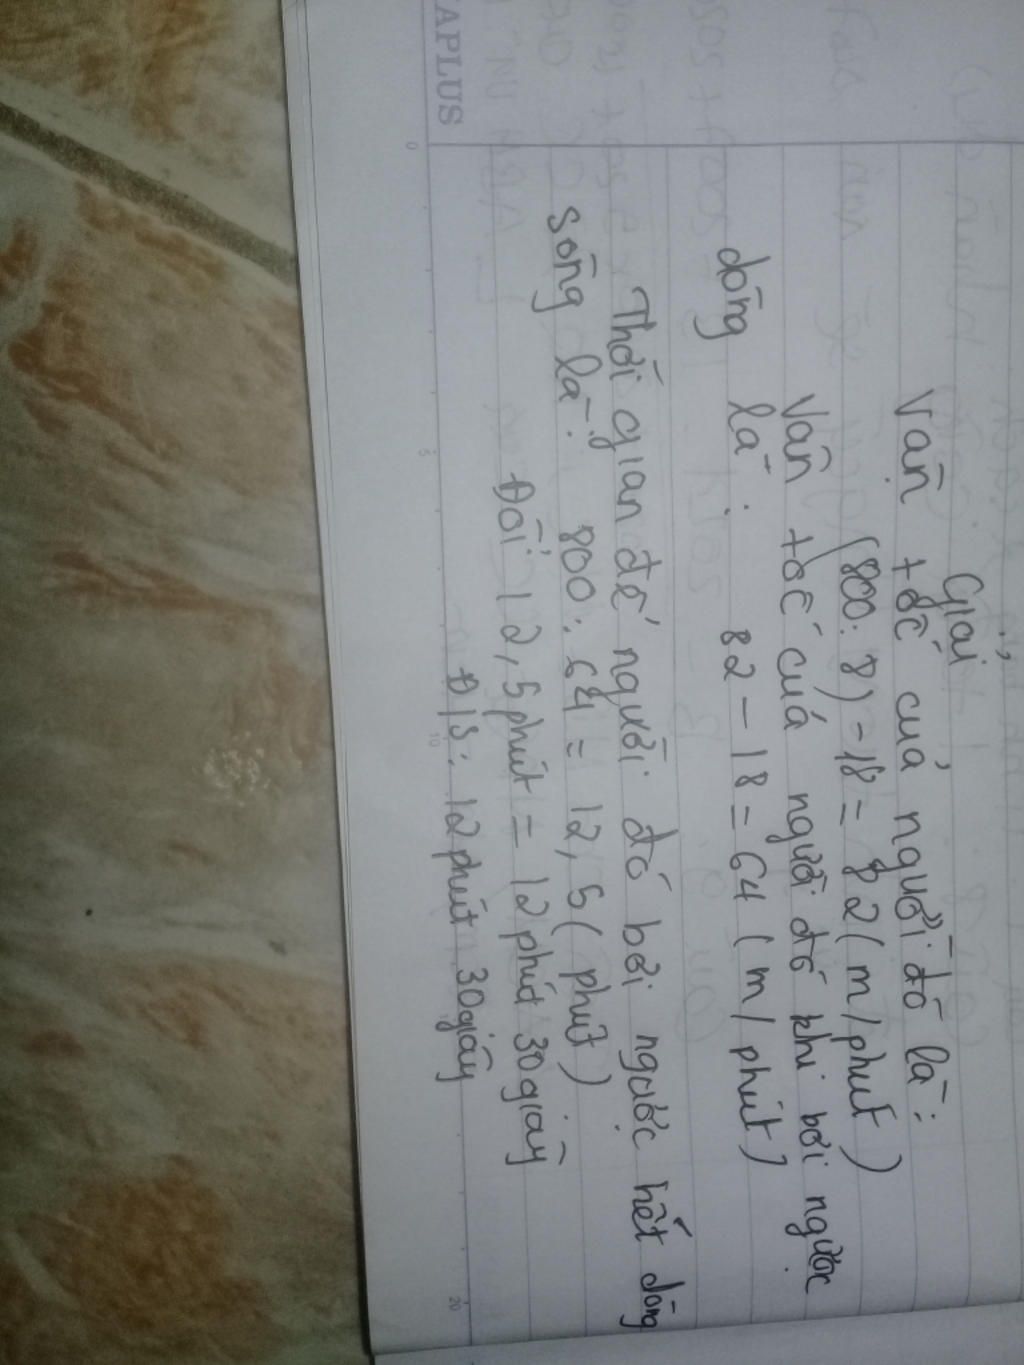 APLUS
0
5
10
20
Giải
Vận tốc của người đó là:
(800:8)-18 = 82(m/phút)
Vận tốc của người đó khi bơi ngược
dòng là: 82-18=64(m/phút)
Thời gian để người đó bơi ngược hết dòng
sông là: 800:64=12,5(phút)
Đổi 12,5phút=12phút 30giây
Đ/S: 12phút 30giây